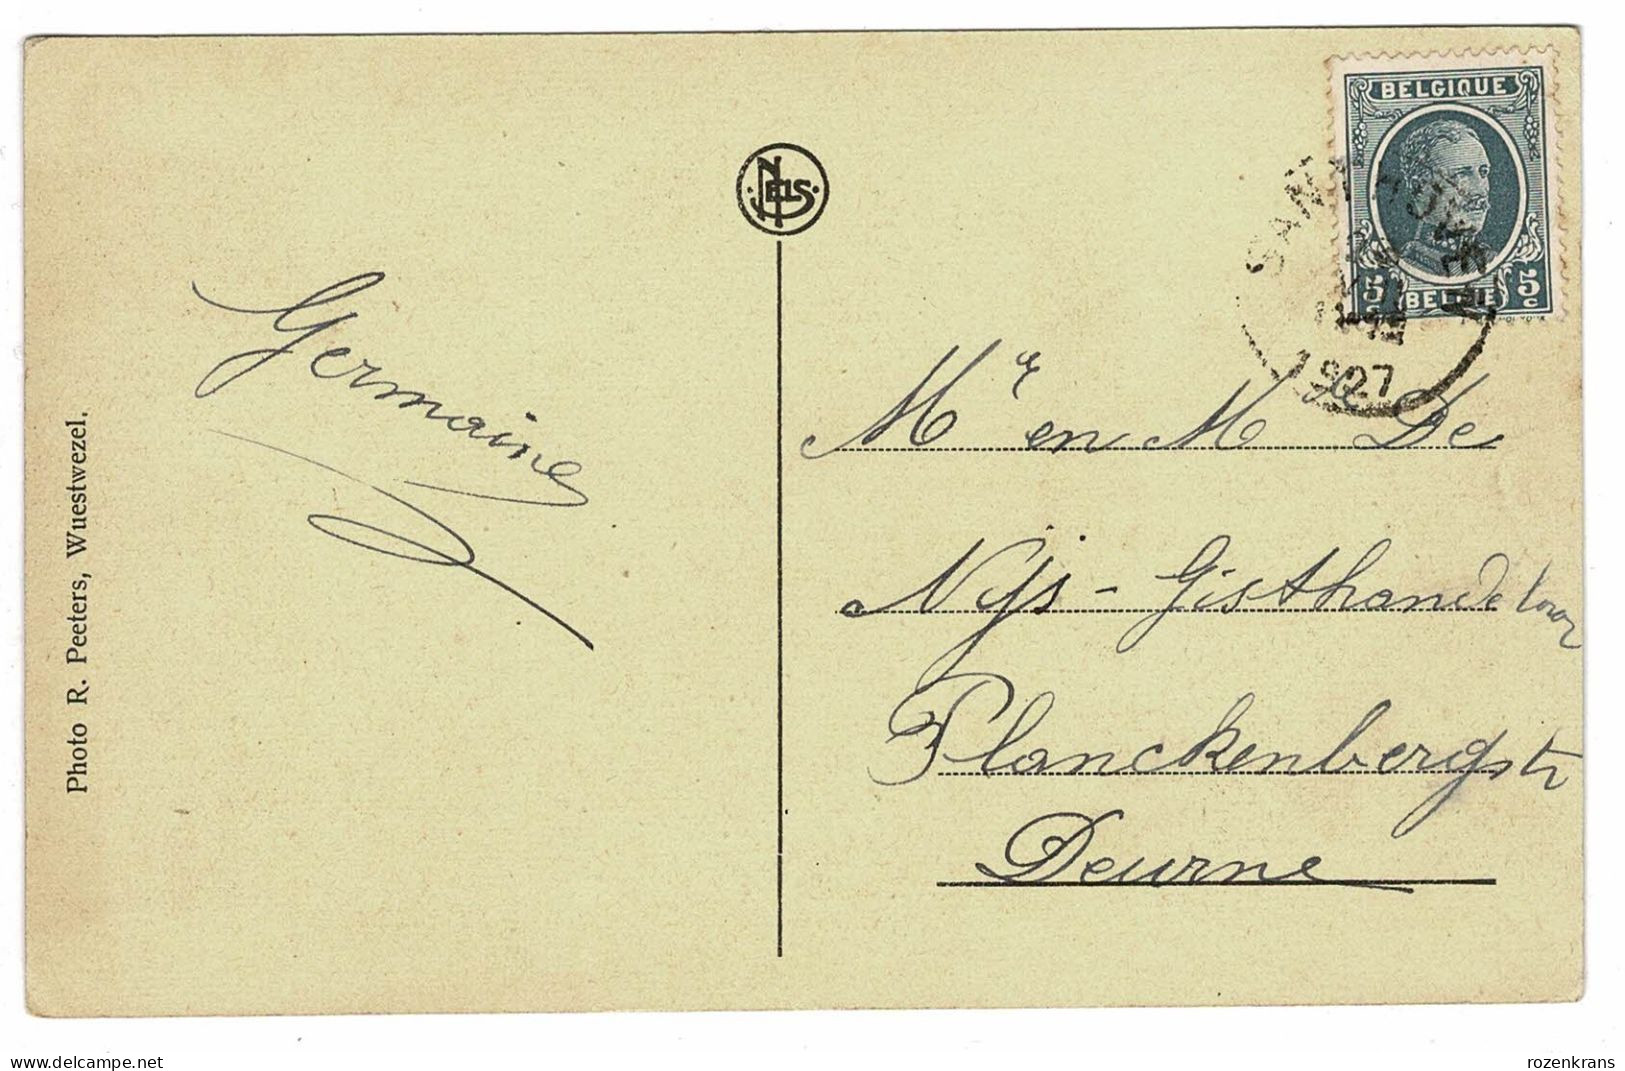 BELGIQUE
5c BELGIE 5c
SANTHOVEN
1927
NELS
Germaine
Photo R. Peeters, Wuestwezel.
Mr en Me De
Nijs - Gisthandelaar
Planckenbergstr
Deurne
delcampe.net
rozenkrans